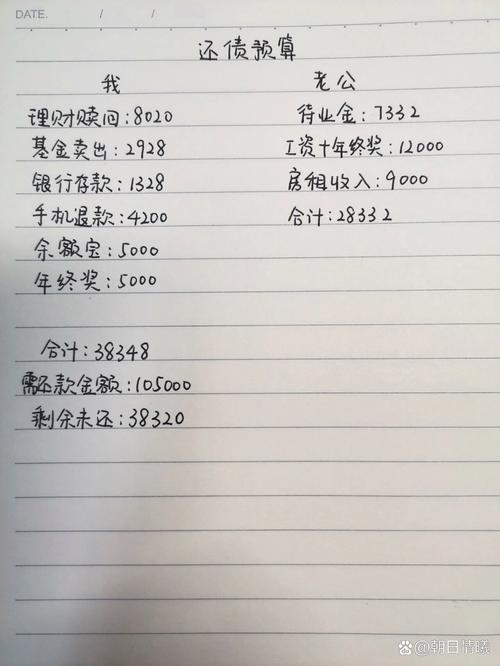 DATE. / /
还债预算
我 老公
理财赎回:8020 待业金:7332
基金卖出:2928 工资十年终奖:12000
银行存款:1328 房租收入:9000
手机退款:4200 合计:28332
余额宝:5000
年终奖:5000
合计:38348
需还款金额:105000
剩余未还:38320
朝日情曦